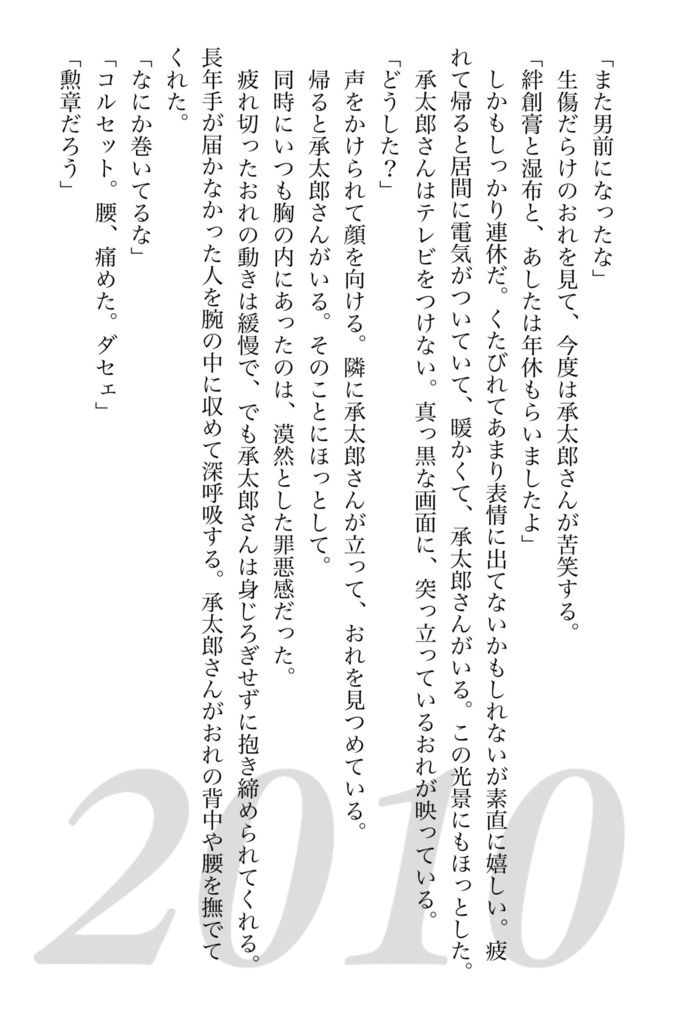 「また男前になったな」
生傷だらけのおれを見て、今度は承太郎さんが苦笑する。
「絆創膏と湿布と、あしたは年休もらいましたよ」
しかもしっかり連休だ。くたびれてあまり表情に出てないかもしれないが素直に嬉しい。疲
れて帰ると居間に電気がついていて、暖かくて、承太郎さんがいる。この光景にもほっとした。
承太郎さんはテレビをつけない。真っ黒な画面に、突っ立っているおれが映っている。
「どうした？」
声をかけられて顔を向ける。隣に承太郎さんが立って、おれを見つめている。
帰ると承太郎さんがいる。そのことにほっとして。
同時にいつも胸の内にあったのは、漠然とした罪悪感だった。
疲れ切ったおれの動きは緩慢で、でも承太郎さんは身じろぎせずに抱き締められてくれる。
長年手が届かなかった人を腕の中に収めて深呼吸する。承太郎さんがおれの背中や腰を撫でて
くれた。
「なにか巻いてるな」
「コルセット。腰、痛めた。ダセェ」
「勲章だろう」
2010